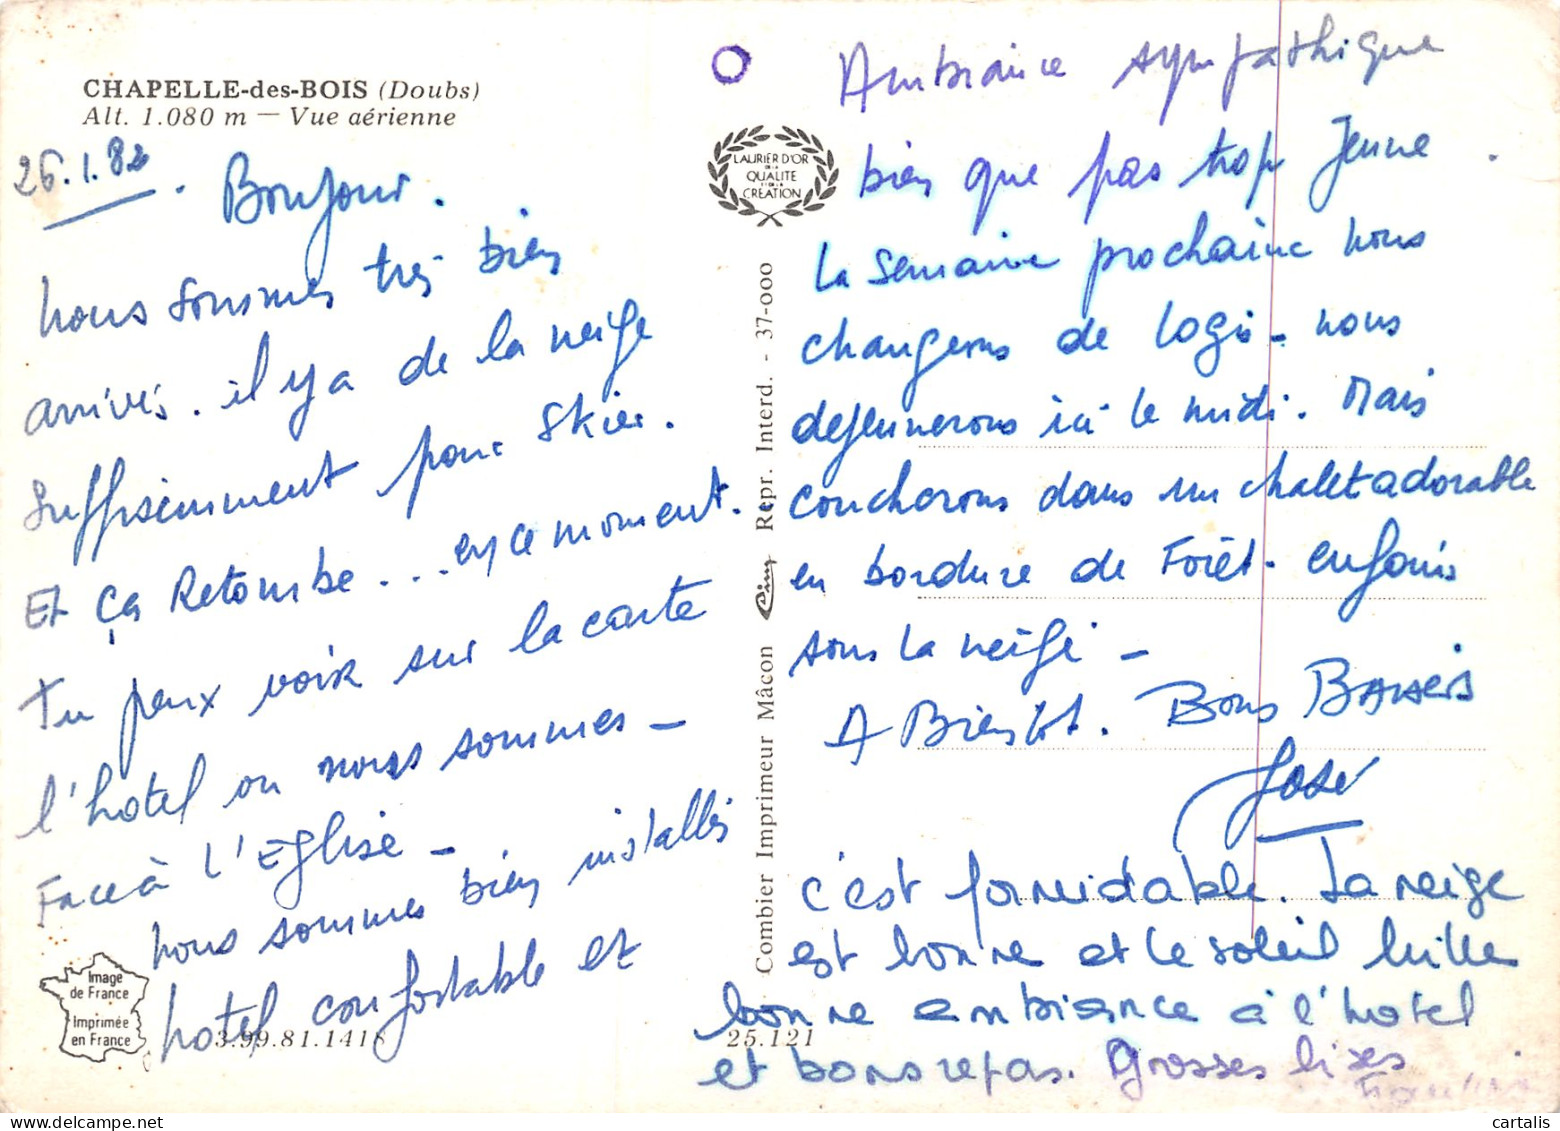 CHAPELLE-des-BOIS (Doubs)
Alt. 1.080 m — Vue aérienne
26.1.82
Bonjour.
nous sommes très bien
arrivés. il y a de la neige
suffisemment pour skier.
Et ça Retombe... en ce moment.
Tu peux voir sur la carte
l'hotel ou nous sommes -
Face à L'Eglise -
nous sommes bien installés
hotel confortable et
Image
de France
Imprimée
en France
3.99.81.1418
LAURIER D'OR
DE LA
QUALITE
ET DE LA
CREATION
Combier Imprimeur Mâcon Cim Repr. Interd. - 37-000
25.121
Ambiance sympathique
bien que pas trop Jeune.
la semaine prochaine nous
changerons de logis - nous
dejeunerons ici le midi. Mais
coucherons dans un chalet adorable
en bordure de Forêt - enfouis
sous la neige -
A Bientot. Bons Baisers
José
c'est formidable. La neige
est bonne et le soleil brille
bonne ambiance à l'hotel
et bons repas. Grosses bises
cartalis